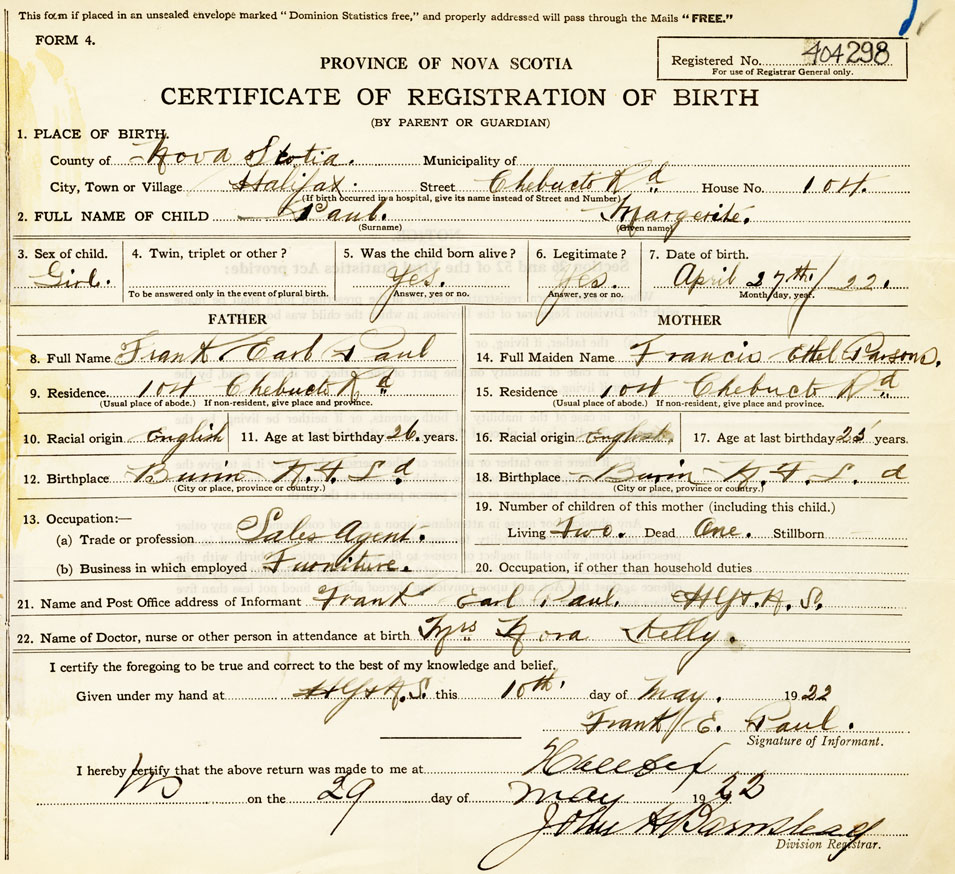 This form if placed in an unsealed envelope marked "Dominion Statistics free," and properly addressed will pass through the Mails "FREE."
FORM 4.
Registered No. 404298
For use of Registrar General only.
PROVINCE OF NOVA SCOTIA
CERTIFICATE OF REGISTRATION OF BIRTH
(BY PARENT OR GUARDIAN)
1. PLACE OF BIRTH.
County of Nova Scotia. Municipality of
City, Town or Village Halifax. Street Chebucto Rd House No. 104.
(If birth occurred in a hospital, give its name instead of Street and Number)
2. FULL NAME OF CHILD Paul. Margerite.
(Surname) (Given name)
3. Sex of child. 4. Twin, triplet or other? 5. Was the child born alive? 6. Legitimate? 7. Date of birth.
Girl. Yes. Yes. April 27th/22.
To be answered only in the event of plural birth. Answer, yes or no. Answer, yes or no. Month, day, year.
FATHER MOTHER
8. Full Name Frank Earl Paul 14. Full Maiden Name Francis Ethel Parsons.
9. Residence. 104 Chebucto Rd 15. Residence 104 Chebucto Rd
(Usual place of abode.) If non-resident, give place and province. (Usual place of abode.) If non-resident, give place and province.
10. Racial origin English 11. Age at last birthday 26. years. 16. Racial origin English. 17. Age at last birthday 25 years.
12. Birthplace Burin N. F. L. d 18. Birthplace Burin N. F. L. d
(City or place, province or country.) (City or place, province or country.)
13. Occupation:— 19. Number of children of this mother (including this child.)
(a) Trade or profession Sales Agent. Living Two. Dead One. Stillborn
(b) Business in which employed Furniture. 20. Occupation, if other than household duties
21. Name and Post Office address of Informant Frank Earl Paul. Hfx. N. S.
22. Name of Doctor, nurse or other person in attendance at birth Mrs Nora Kelly.
I certify the foregoing to be true and correct to the best of my knowledge and belief.
Given under my hand at Hfx N.S. this 10th. day of May. 1922
Frank E. Paul.
Signature of Informant.
I hereby certify that the above return was made to me at Halifax
NS on the 29 day of May 1922
John H Barnstead
Division Registrar.